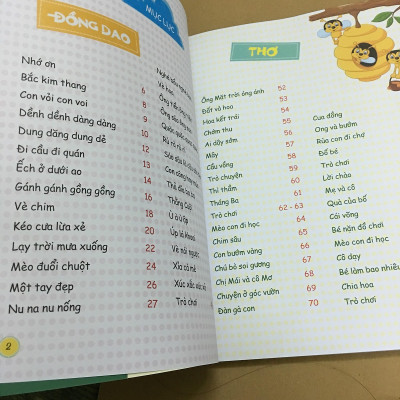 MỤC LỤC
ĐỒNG DAO
Nhớ ơn
Bắc kim thang 6
Con vỏi con voi 8
Dềnh dềnh dàng dàng 9
Dung dăng dung dẻ 10
Đi cầu đi quán 12
Ếch ở dưới ao 13
Gánh gánh gồng gồng 14
Vè chim 16
Kéo cưa lừa xẻ 18
Lạy trời mưa xuống 20
Mèo đuổi chuột 22
Một tay đẹp 24
Nu na nu nống 26
27
Thằng Cuội
Ú òa ú ập
Vè nói ngược
Xỉa cá mè
Xúc xắc xúc xẻ
Trò chơi
2
THƠ
Ông Mặt trời óng ánh 52
Đất và hoa 53
Hoa kết trái 54
Chăm thu 55
Ai dậy sớm 56
Mây 57
Cầu vồng 58
Trò chuyện 59
Thì thầm 60
Tháng Ba 61
Trò chơi 62 - 63
Mèo con đi học 64
Chim sâu 65
Con bướm vàng 66
Chú bò soi gương 67
Chị Mái và cô Mơ 68
Chuyện ở góc vườn 69
Đàn gà con 70
Cua đồng
Ong và bướm
Rùa con đi chợ
Đố bé
Trò chơi
Lời chào
Mẹ và cô
Quà của bố
Cái võng
Bé nặn đồ chơi
Mèo con đi học
Cô dạy
Bé làm bao nhiêu
Chia hoa
Trò chơi